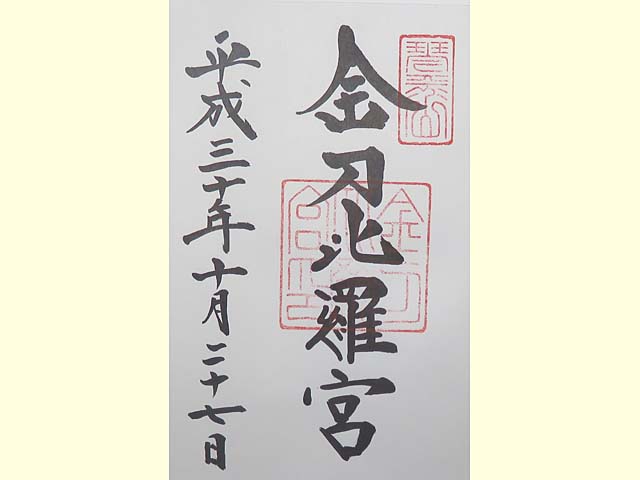 金刀比羅宮
平成三十年十月二十七日